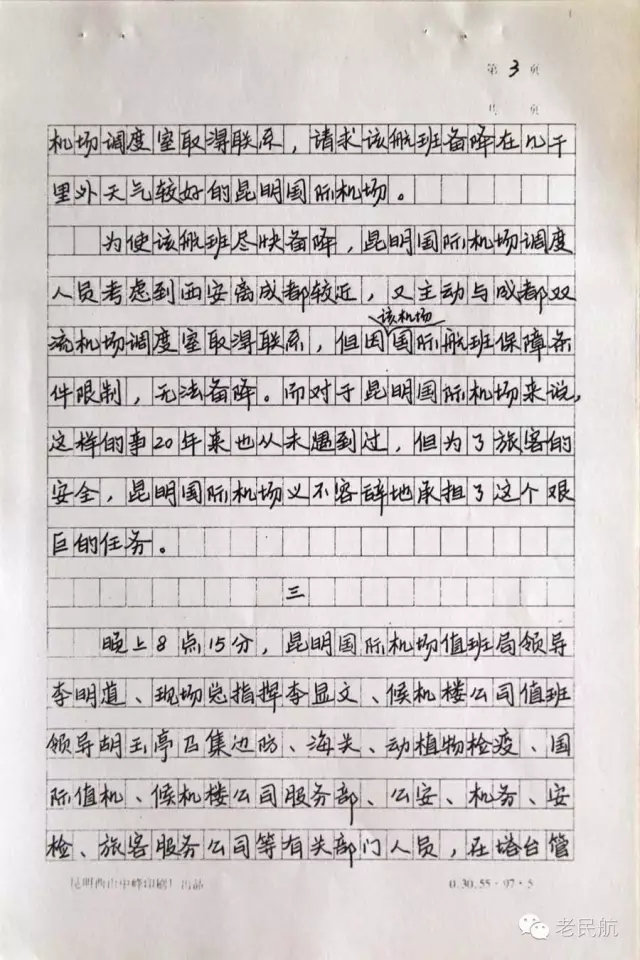 第 3 页
共 页
机场调度室取得联系，请求该航班备降在几千
里外天气较好的昆明国际机场。
为使该航班尽快备降，昆明国际机场调度
人员考虑到西安离成都较近，又主动与成都双
该机场
流机场调度室取得联系，但因国际航班保障条
件限制，无法备降。而对于昆明国际机场来说，
这样的事20年来也从未遇到过，但为了旅客的
安全，昆明国际机场义不容辞地承担了这个艰
巨的任务。
三
晚上8点15分，昆明国际机场值班局领导
李明道、现场总指挥李显文、候机楼公司值班
领导胡玉亭召集边防、海关、动植物检疫、国
际值机、候机楼公司服务部、公安、机务、安
检、旅客服务公司等有关部门人员，在塔台管
昆明西山中峰印刷厂出品
0.30.55·97·5
老民航